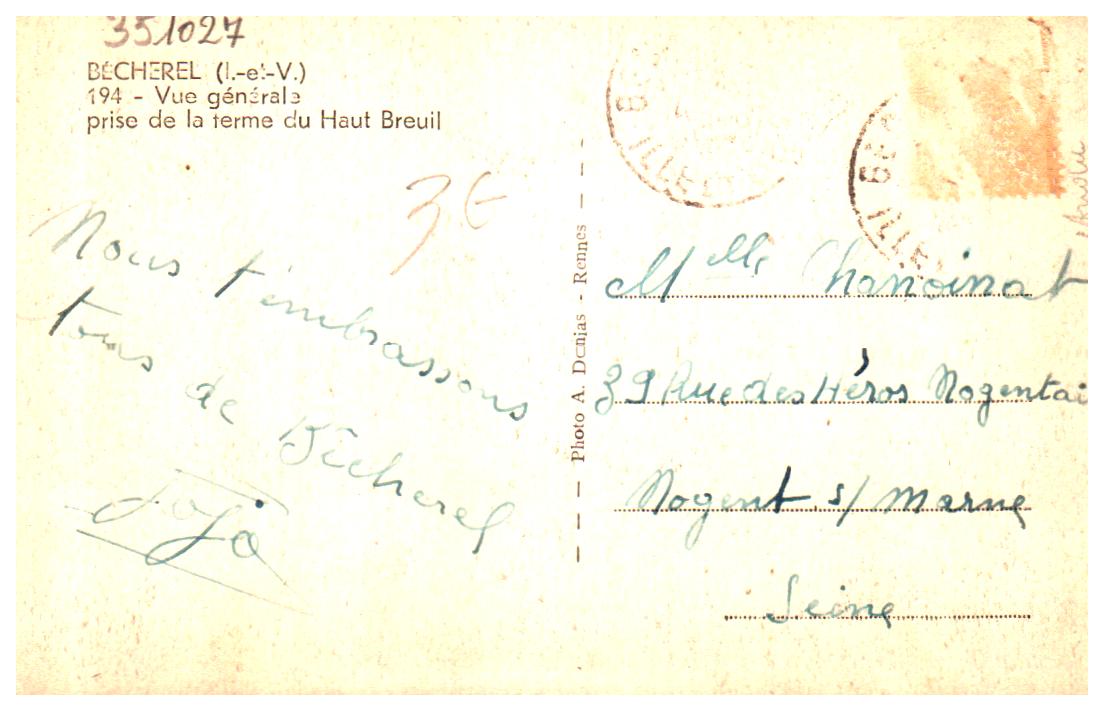 351027
BÉCHEREL (I.-et-V.)
194 - Vue générale
prise de la ferme du Haut Breuil
3€
Nous t'embrassons
tous de Bécherel
Jojo
Photo A. Denias - Rennes
ILLE
ILLE
Melle Chanoinat
39 Rue des Héros Nogentai
Nogent s/ Marne
Seine